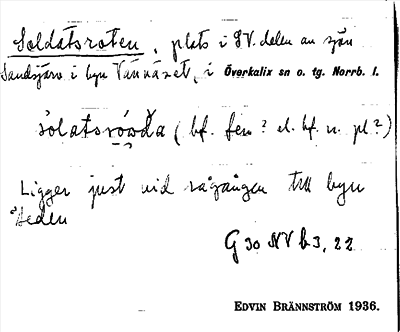 Soldatsroten, plats i SV. delen av sjön
Sandsjärv i byn Vännäset, i Överkalix sn o. tg. Norrb. l.
sólatsróѡda (bf. fem? el. bf. n. pl?)
Ligger just vid rågången till byn
Heden
G 30 NV b 3, 22
EDVIN BRÄNNSTRÖM 1936.